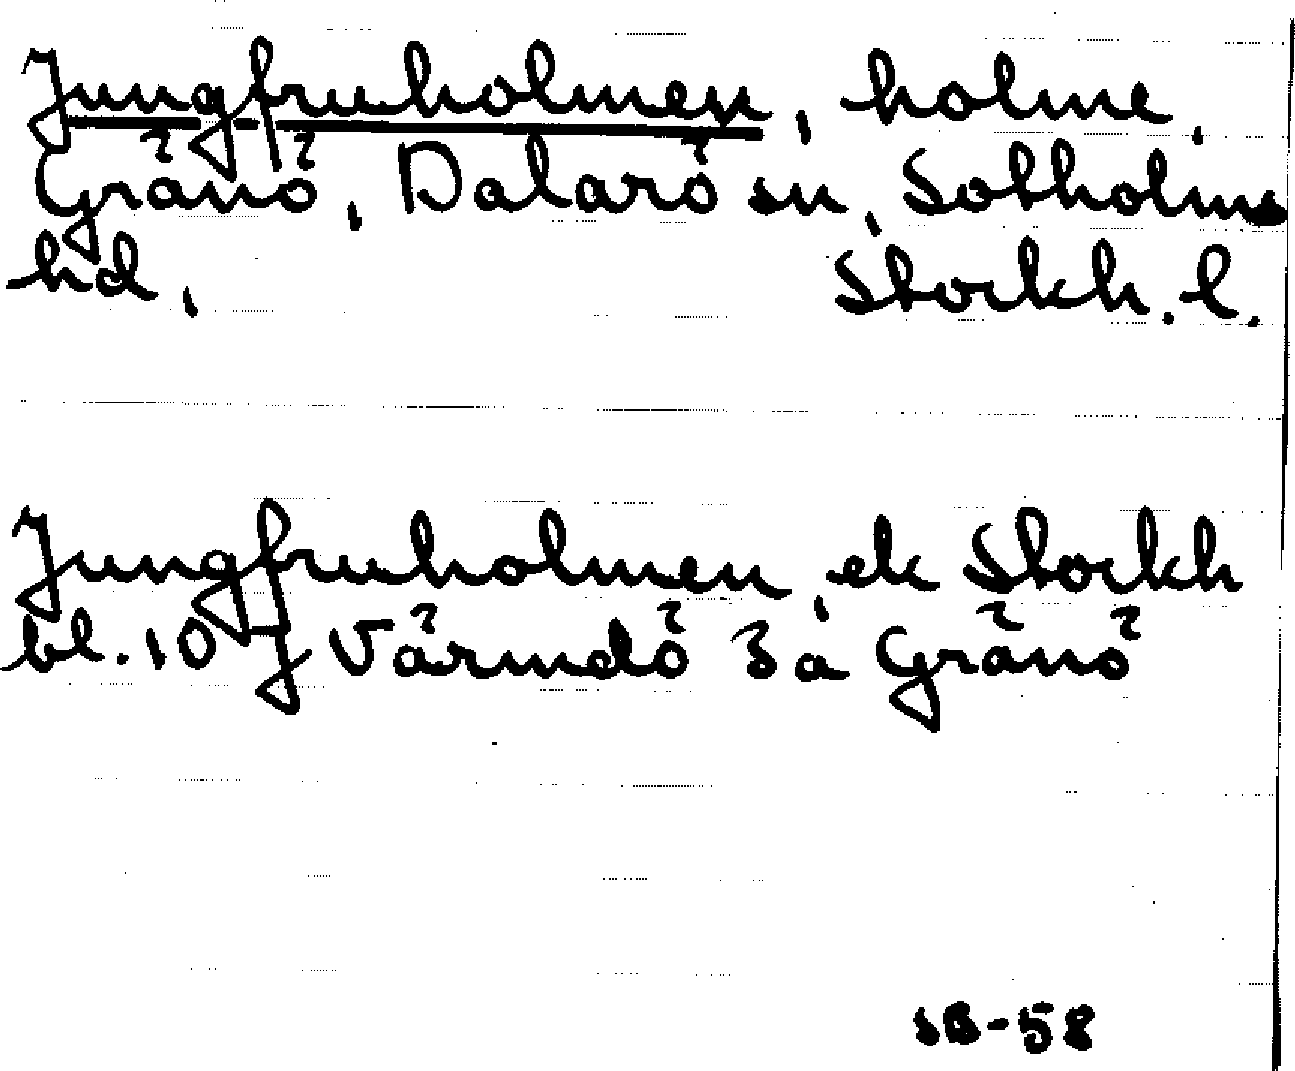 Jungfruholmen, holme.
Gränö, Dalarö sn, Sotholms
hd, Stockh. l.
Jungfruholmen, ek Stockh
bl. 10 J Värmdö 3 a Gränö
SB-58